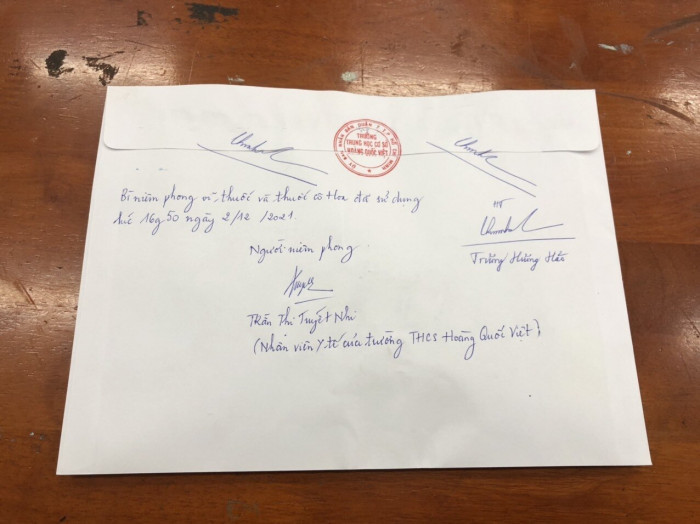 TRƯỜNG
TRUNG HỌC CƠ SỞ
HOÀNG QUỐC VIỆT
Bì niêm phong vỉ thuốc và thuốc cô Hoa đã sử dụng
lúc 16g50 ngày 2/12/2021.
HT
Người niêm phong
Trần Thị Tuyết Nhi
(Nhân viên y tế của trường THCS Hoàng Quốc Việt)